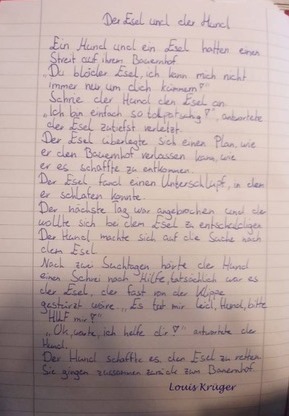 Der Esel und der Hund
Ein Hund und ein Esel hatten einen
Streit auf ihren Bauernhof.
„Du blöder Esel, ich kann mich nicht
immer neu um dich kümmern!"
Schrie der Hund den Esel an.
„Ich bin einfach so tolpatschig!", antwortete
der Esel zutiefst verletzt.
Der Esel überlegte sich einen Plan, wie
er den Bauernhof verlassen kann, wie
er es schaffte zu entkommen.
Der Esel fand einen Unterschlupf, in dem
er schlafen konnte.
Der nächste Tag war angebrochen und der
wollte sich bei dem Esel zu entschuldigen
Der Hund machte sich auf die Suche nach
dem Esel.
Nach zwei Suchtagen hörte der Hund
einen Schrei nach Hilfe, tatsächlich war es
der Esel, der fast von der Klippe
gestürzt wäre. „Es tut mir leid, Hund, bitte
Hilf mir!"
„Oh, warte, ich helfe dir!" antwortete der
Hund.
Der Hund schaffte es, den Esel zu retten
Sie gingen zusammen zurück zum Bauernhof.
Louis Krüger